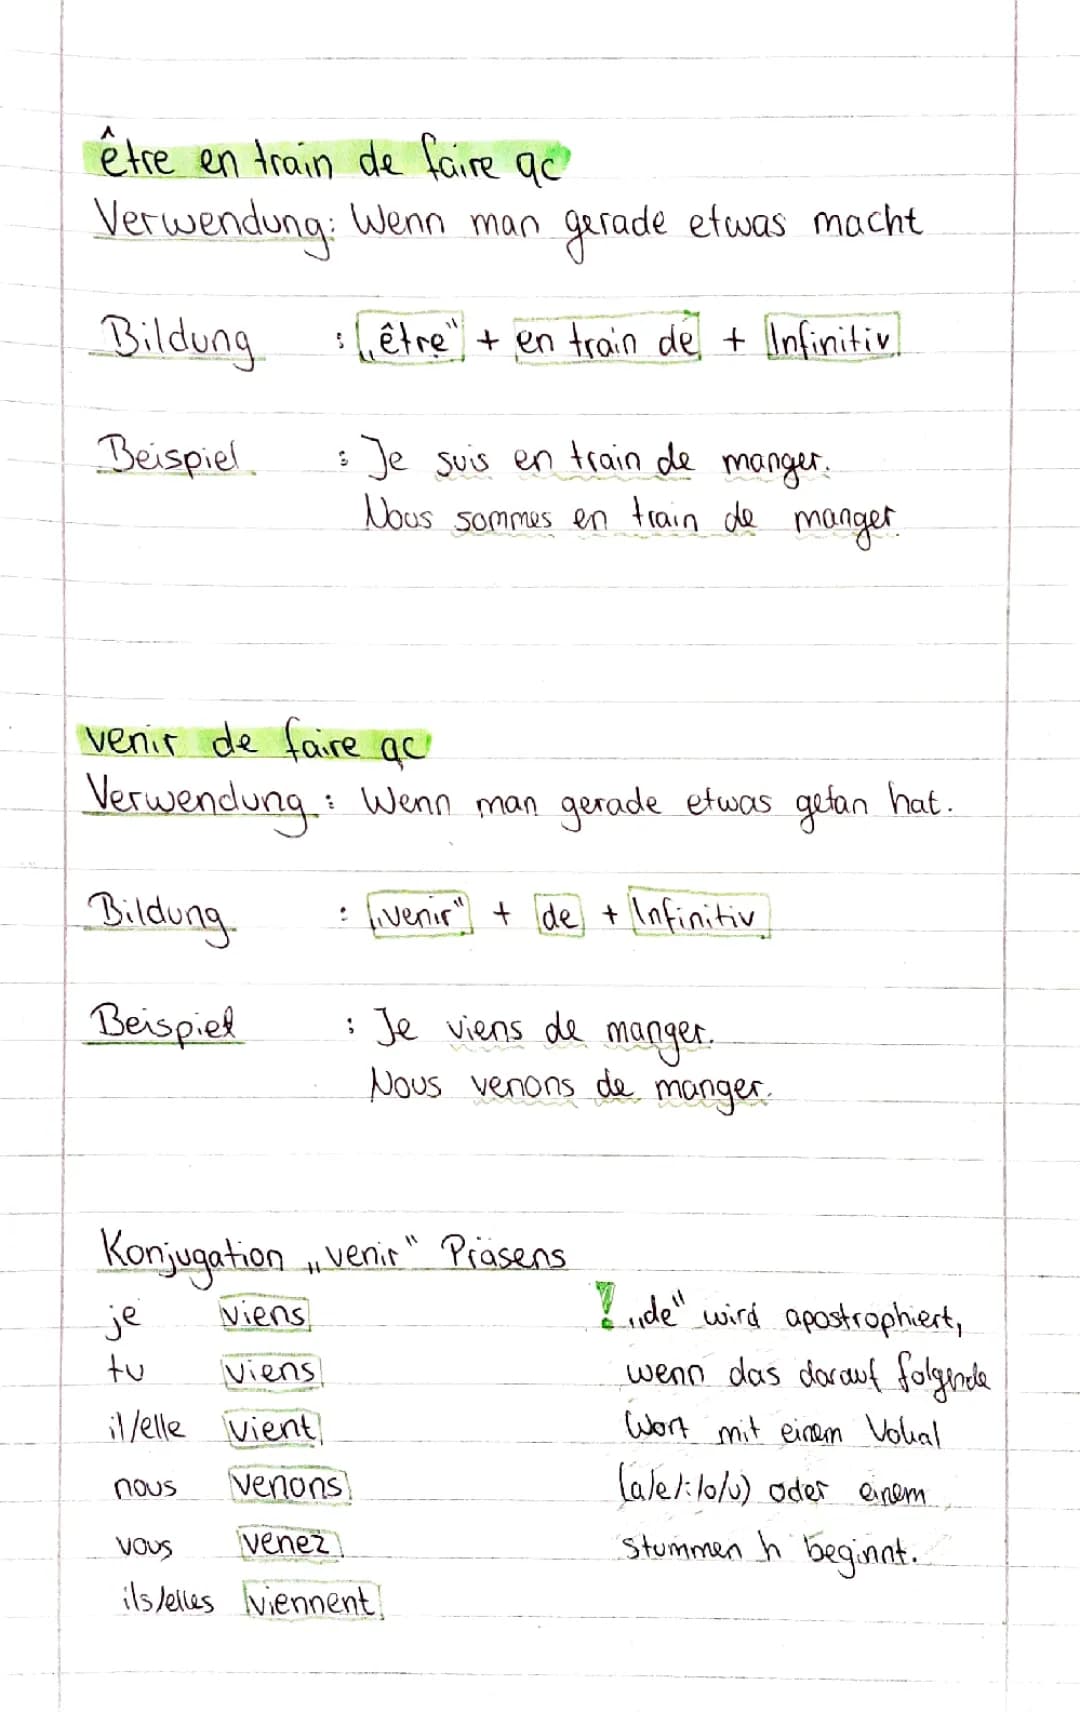 être en train de faire qc
Verwendung: Wenn man gerade etwas macht
Bildung : „être" + en train de + Infinitiv
Beispiel : Je suis en train de manger.
Nous sommes en train de manger.
venir de faire qc
Verwendung: Wenn man gerade etwas getan hat.
Bildung : „venir" + de + Infinitiv
Beispiel : Je viens de manger.
Nous venons de manger.
Konjugation „venir" Präsens
je viens
tu viens
il/elle vient
nous venons
vous venez
ils/elles viennent
! „de" wird apostrophiert,
wenn das darauf folgende
Wort mit einem Vokal
(a/e/i/o/u) oder einem
stummen h beginnt.